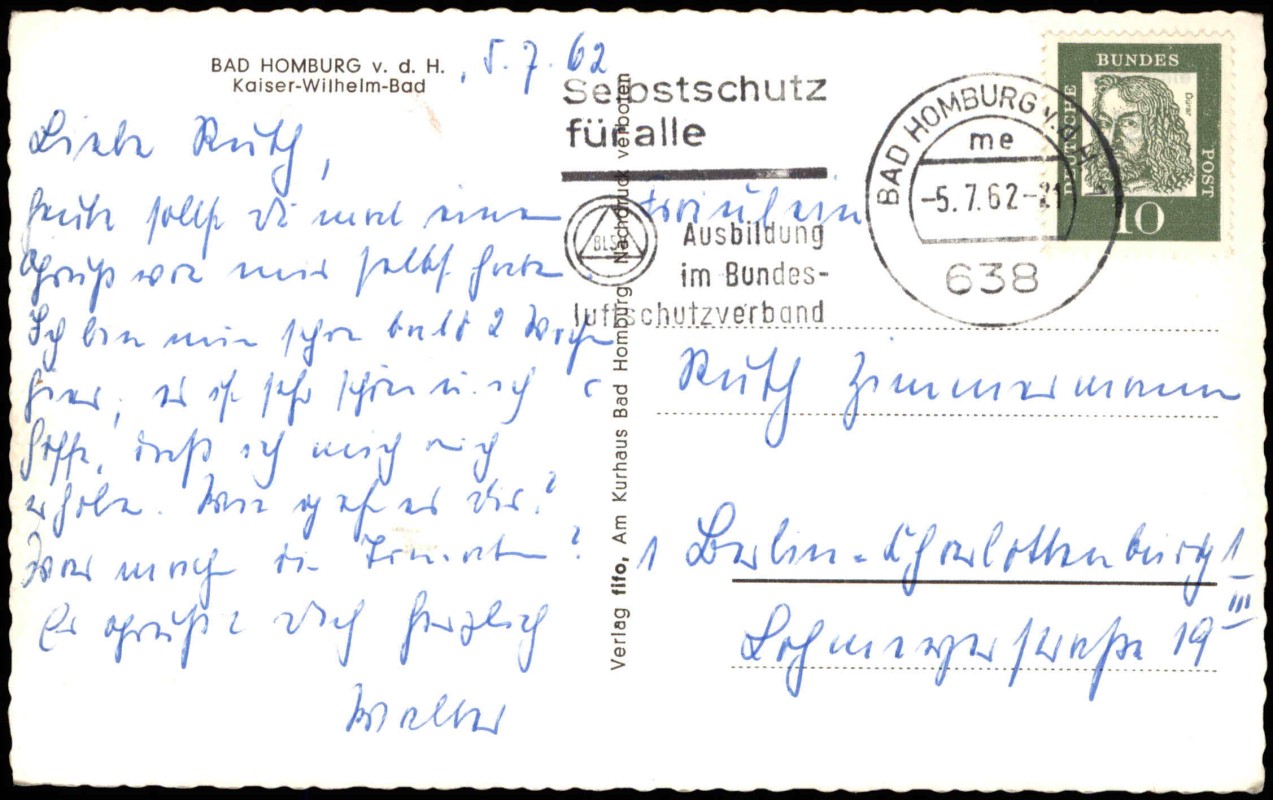 BAD HOMBURG v. d. H.
Kaiser-Wilhelm-Bad
, 5.7.62
Liebe Ruth,
heute sollst Du mal einen
Gruß von mir selbst haben.
Ich bin nun schon bald 2 Wochen
hier, es ist sehr schön u. ich
hoffe, daß ich mich
erhole. Wie geht es Dir?
Was machen die ?
Es grüßt Dich herzlich
Walter
Verlag fifo, Am Kurhaus Bad Homburg Nachdruck verboten
Selbstschutz
für alle
BLSV
Ausbildung
im Bundes-
luftschutzverband
BAD HOMBURG v. d. H.
me
-5.7.62-21
638
DEUTSCHE
BUNDES
POST
Dürer
10
Fräulein
Ruth Zimmermann
1 Berlin-Charlottenburg 1
III
Lohmeyerstraße 19